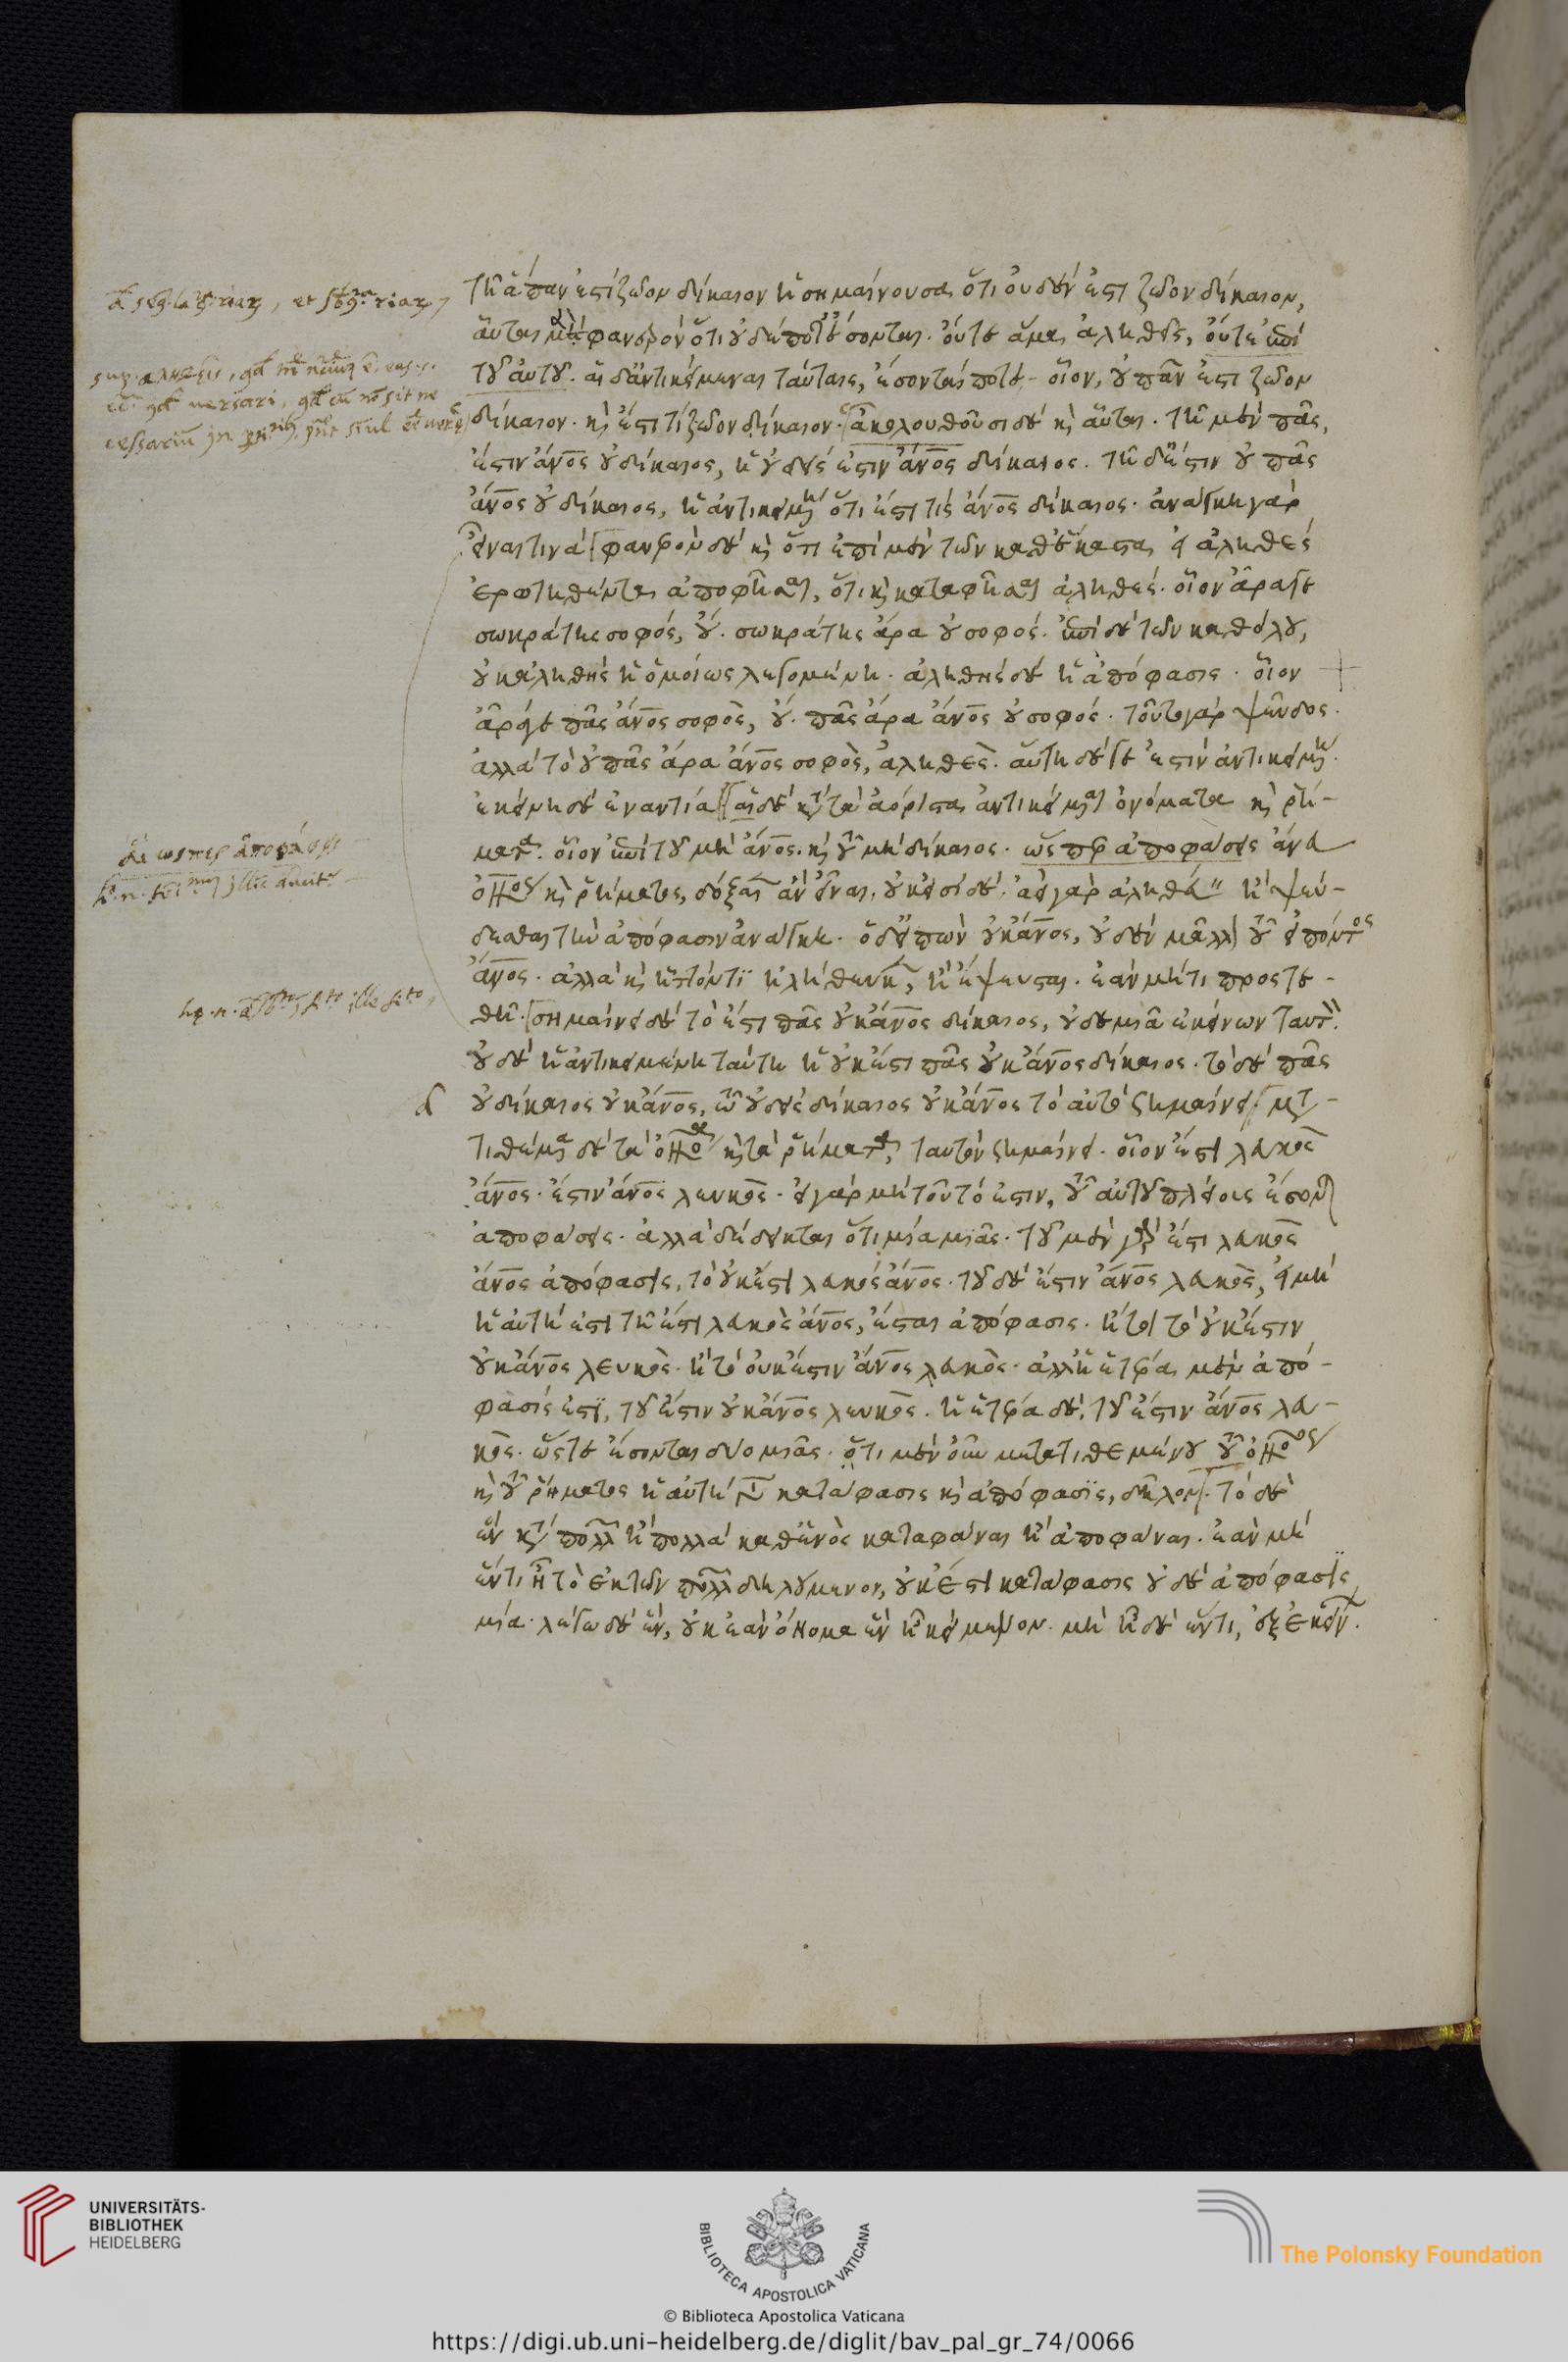 τῆ ἅπαν ἐστὶ ζῶον δίκαιον ἡ σημαίνουσα ὅτι οὐδέν ἐστι ζῶον δίκαιον,
αὗται μὲν φανερὸν ὅτι οὐδέποτε ἔσονται. οὔτε ἅμα ἀληθεῖς, οὔτε ἐπὶ
τοῦ αὐτοῦ. αἱ δ' ἀντικείμεναι ταύταις, ἔσονταί ποτε. οἷον, οὐ πᾶν ἐστι ζῶον
δίκαιον. καὶ ἔστι τὶ ζῶον δίκαιον. ἀκολουθοῦσι δὲ καὶ αὗται. τῆ μὲν πᾶς,
ἐστὶν ἄν̅ος οὐ δίκαιος, ἡ οὐδείς ἐστιν ἄν̅ος δίκαιος. τῆ δὲ ἔστιν οὐ πᾶς
ἄν̅ος οὐ δίκαιος, ἡ ἀντικειμένη ὅτι ἔστι τὶς ἄν̅ος δίκαιος. ἀνάγκη γὰρ
εἶναι τινά. φανερὸν δὲ καὶ ὅτι ἐπὶ μὲν τῶν καθ' ἕκαστα εἰ ἀληθὲς
ἐρωτηθέντα ἀποφῆσαι, ὅτι καὶ καταφῆσαι ἀληθές. οἷον ἆρά γε
σωκράτης σοφός, οὔ. σωκράτης ἄρα οὐ σοφός. ἐπὶ δὲ τῶν καθόλου,
οὐκ ἀληθὴς ἡ ὁμοίως λεγομένη. ἀληθὴς δὲ ἡ ἀπόφασις. οἷον
ἆρά γε πᾶς ἄν̅ος σοφὸς, οὔ. πᾶς ἄρα ἄν̅ος οὐ σοφός. τοῦτο γὰρ ψεῦδος.
ἀλλὰ τὸ οὐ πᾶς ἄρα ἄν̅ος σοφὸς, ἀληθὲς. αὕτη δέ γε ἐστὶν ἀντικειμένη.
ἐκείνη δὲ ἐναντία. αἱ δὲ κατὰ τὰ ἀόριστα ἀντικείμεναι ὀνόματα καὶ ῥή-
ματα. οἷον ἐπὶ τοῦ μὴ ἄν̅ος. καὶ τοῦ μὴ δίκαιος. ὥσπερ ἀποφάσεις ἄνευ
ὀνόματος καὶ ῥήματος, δόξαιεν ἂν εἶναι. οὐκ εἰσὶ δέ. ἀεὶ γὰρ ἀληθεύειν ἢ ψεύ-
δεσθαι τὴν ἀπόφασιν ἀνάγκη. ὁ δ' εἰπὼν οὐκ ἄν̅ος, οὐδὲν μᾶλλον τοῦ εἰπόντος
ἄν̅ος. ἀλλὰ καὶ ἧττόν τι ἠλήθευκεν, ἢ ἔψευσται. ἐὰν μή τι προστε-
θῆ. σημαίνει δὲ τὸ ἔστι πᾶς οὐκ ἄν̅ος δίκαιος, οὐδεμιᾶ ἐκείνων ταὐτόν.
οὐδὲ ἡ ἀντικειμένη ταύτη ἡ οὐκ ἔστι πᾶς οὐκ ἄν̅ος δίκαιος. τὸ δὲ πᾶς
οὐ δίκαιος οὐκ ἄν̅ος, τῶ οὐδεὶς δίκαιος οὐκ ἄν̅ος τὸ αὐτὸ σημαίνει. μετα-
τιθέμενα δὲ τὰ ὀνόματα καὶ τὰ ῥήματα, ταὐτὸν σημαίνει. οἷον ἔστι λευκὸς
ἄν̅ος. ἔστιν ἄν̅ος λευκὸς. εἰ γὰρ μὴ τοῦτό ἐστιν, τοῦ αὐτοῦ πλείους ἔσονται
ἀποφάσεις. ἀλλὰ δέδεικται ὅτι μία μιᾶς. τοῦ μὲν γὰρ ἔστι λευκὸς
ἄν̅ος ἀπόφασις, τὸ οὐκ ἔστι λευκὸς ἄν̅ος. τοῦ δὲ ἔστιν ἄν̅ος λευκὸς, εἰ μὴ
ἡ αὐτή ἐστι τῆ ἔστι λευκὸς ἄν̅ος, ἔσται ἀπόφασις. ἤτοι τὸ οὐκ ἔστιν
οὐκ ἄν̅ος λευκὸς. ἢ τὸ οὐκ ἔστιν ἄν̅ος λευκὸς. ἀλλ' ἡ ἑτέρα μὲν ἀπό-
φασίς ἐστι, τοῦ ἔστιν οὐκ ἄν̅ος λευκὸς. ἡ ἑτέρα δὲ, τοῦ ἔστιν ἄν̅ος λευ-
κὸς. ὥστε ἔσονται δύο μιᾶς. ὅτι μὲν οὖν μετατιθεμένου τοῦ ὀνόματος
καὶ τοῦ ῥήματος ἡ αὐτὴ γίνεται κατάφασις καὶ ἀπόφασις, δῆλον. τὸ δὲ
ἓν κατὰ πολλῶν ἢ πολλὰ καθ' ἑνὸς καταφάναι ἢ ἀποφάναι. ἐὰν μὴ
ἕν τι ἦ τὸ ἐκ τῶν πολλῶν δηλούμενον, οὐκ ἔστι κατάφασις οὐδὲ ἀπόφασις
μία. λέγω δὲ ἓν, οὐκ ἐὰν ὄνομα ἓν ἦ κείμενον. μὴ ἦ δὲ ἕν τι, ἐξ ἐκείνων.
UNIVERSITÄTS-
BIBLIOTHEK
HEIDELBERG
BIBLIOTECA APOSTOLICA VATICANA
The Polonsky Foundation
© Biblioteca Apostolica Vaticana
https://digi.ub.uni-heidelberg.de/diglit/bav_pal_gr_74/0066